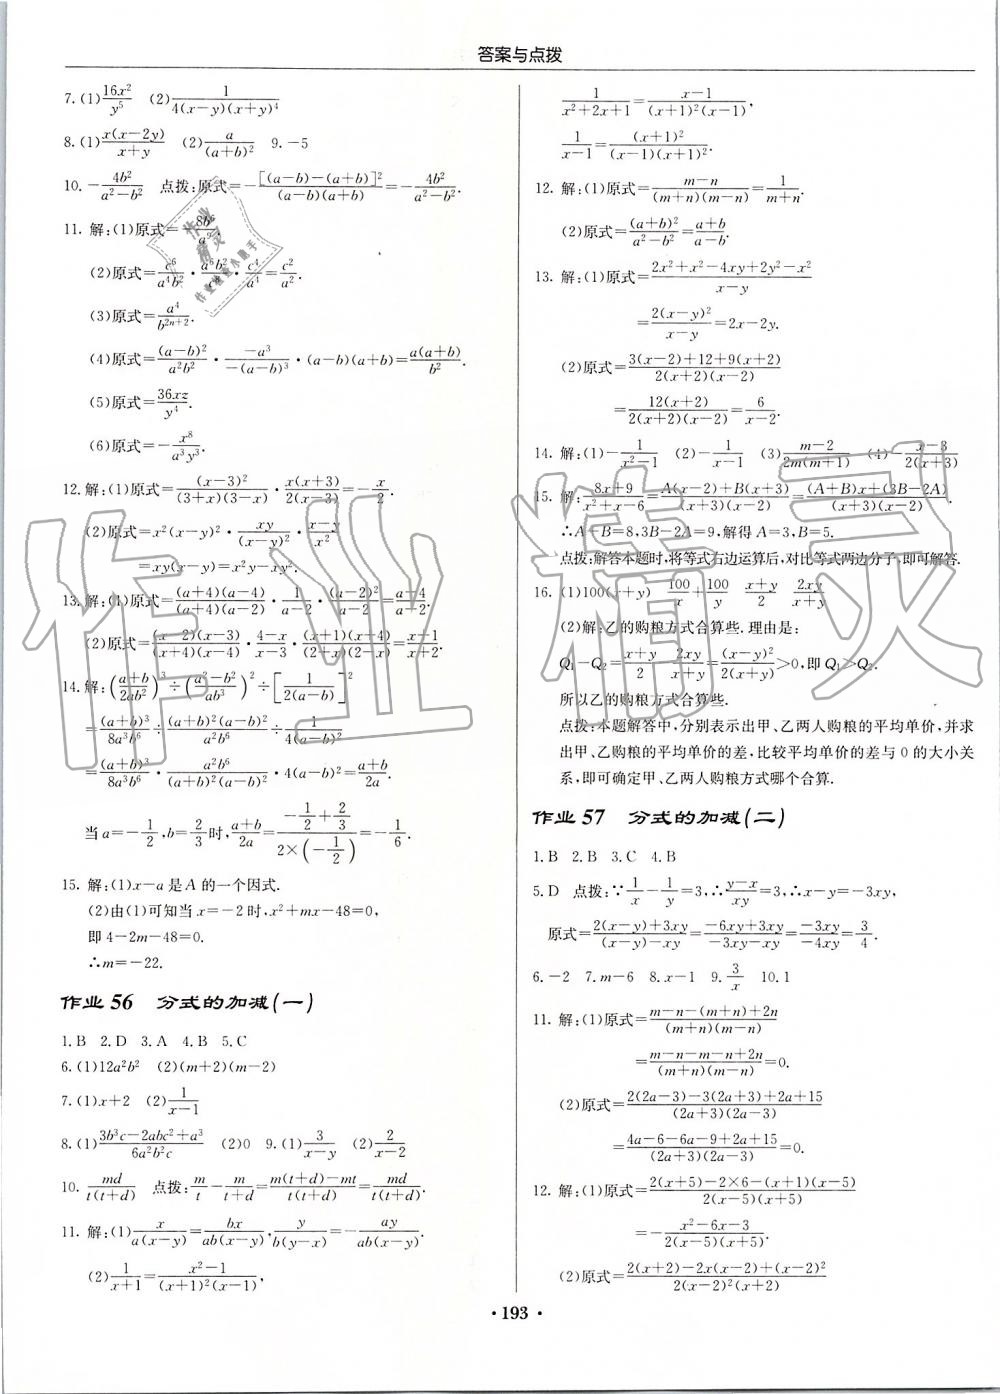 答案与点拨
7. (1) 16x²/y⁵ (2) 1/[4(x−y)(x+y)⁴]
8. (1) x(x−2y)/(x+y) (2) a/(a+b)² 9. −5
10. −4b²/(a²−b²) 点拨:原式=−[(a−b)−(a+b)]²/[(a−b)(a+b)]=−4b²/(a²−b²).
11. 解:(1)原式=−8b⁶/a⁹.
(2)原式=c⁶/(a⁴b²)·a⁶b²/c⁸·c⁴/a⁴=c²/a².
(3)原式=a⁴/b²ⁿ⁺².
(4)原式=(a−b)²/(a²b²)·−a³/[−(a−b)³]·(a−b)(a+b)=a(a+b)/b².
(5)原式=36xz/y⁴.
(6)原式=−x⁸/(a³y³).
12. 解:(1)原式=(x−3)²/[(3+x)(3−x)]·x(x+3)/[2(x−3)]=−x/2.
(2)原式=x²(x−y)²·xy/(x−y)²·(x−y)/x²
=xy(x−y)=x²y−xy².
13. 解:(1)原式=(a+4)(a−4)/[(a+4)(a−2)]·1/(a−2)·(a−2)²/(a−4)=(a+4)/(a−2).
(2)原式=(x−2)(x−3)/[(x+4)(x−4)]·(4−x)/(x−3)·(x+1)(x+4)/[(2+x)(2−x)]=(x+1)/(x+2).
14. 解:((a+b)/(2ab²))³÷((a²−b²)/(ab³))²÷[1/(2(a−b))]²
=(a+b)³/(8a³b⁶)÷(a+b)²(a−b)²/(a²b⁶)÷1/[4(a−b)²]
=(a+b)³/(8a³b⁶)·a²b⁶/[(a+b)²(a−b)²]·4(a−b)²=(a+b)/(2a).
当a=−1/2,b=2/3时,(a+b)/(2a)=(−1/2+2/3)/(2×(−1/2))=−1/6.
15. 解:(1)x−a是A的一个因式.
(2)由(1)可知当x=−2时,x²+mx−48=0,
即4−2m−48=0.
∴m=−22.
作业56 分式的加减(一)
1. B 2. D 3. A 4. B 5. C
6. (1)12a²b² (2)(m+2)(m−2)
7. (1)x+2 (2)1/(x−1)
8. (1)(3b³c−2abc²+a³)/(6a²b²c) (2)0 9. (1)3/(x−y) (2)2/(x−2)
10. md/[t(t+d)] 点拨:m/t−m/(t+d)=[m(t+d)−mt]/[t(t+d)]=md/[t(t+d)].
11. 解:(1)x/[a(x−y)]=bx/[ab(x−y)],y/[b(y−x)]=−ay/[ab(x−y)].
(2)1/(x+1)=(x²−1)/[(x+1)²(x−1)],
1/(x²+2x+1)=(x−1)/[(x+1)²(x−1)],
1/(x−1)=(x+1)²/[(x−1)(x+1)²].
12. 解:(1)原式=(m−n)/[(m+n)(m−n)]=1/(m+n).
(2)原式=(a+b)²/(a²−b²)=(a+b)/(a−b).
13. 解:(1)原式=(2x²+x²−4xy+2y²−x²)/(x−y)
=2(x−y)²/(x−y)=2x−2y.
(2)原式=[3(x−2)+12+9(x+2)]/[2(x+2)(x−2)]
=12(x+2)/[2(x+2)(x−2)]=6/(x−2).
14. 解:(1)−1/(x²−1) (2)−1/(x−1) (3)(m−2)/[2m(m+1)] (4)−(x−3)/[2(x+3)]
15. 解:(8x+9)/(x²+x−6)=[A(x−2)+B(x+3)]/[(x+3)(x−2)]=[(A+B)x+(3B−2A)]/[(x+3)(x−2)].
∴A+B=8,3B−2A=9,解得A=3,B=5.
点拨:解答本题时,将等式右边运算后,对比等式两边分子,即可解答.
16. (1)100(x+y) 100/x+100/y (x+y)/2 2xy/(x+y)
(2)解:乙的购粮方式合算些.理由是:
Q₁−Q₂=(x+y)/2−2xy/(x+y)=(x−y)²/[2(x+y)]>0,即Q₁>Q₂.
所以乙的购粮方式合算些.
点拨:本题解答中,分别表示出甲、乙两人购粮的平均单价,并求
出甲、乙购粮的平均单价的差,比较平均单价的差与0的大小关
系,即可确定甲、乙两人购粮方式哪个合算.
作业57 分式的加减(二)
1. B 2. B 3. C 4. B
5. D 点拨:∵1/x−1/y=3,∴(y−x)/(xy)=3,∴x−y=−3xy,
原式=[2(x−y)+3xy]/[(x−y)−xy]=(−6xy+3xy)/(−3xy−xy)=−3xy/−4xy=3/4.
6. −2 7. m−6 8. x−1 9. 3/x 10. 1
11. 解:(1)原式=[m−n−(m+n)+2n]/[(m+n)(m−n)]
=(m−n−m−n+2n)/[(m+n)(m−n)]=0.
(2)原式=[2(2a−3)−3(2a+3)+2a+15]/[(2a+3)(2a−3)]
=(4a−6−6a−9+2a+15)/[(2a+3)(2a−3)]=0.
12. 解:(1)原式=[2(x+5)−2×6−(x+1)(x−5)]/[2(x−5)(x+5)]
=−(x²−6x−3)/[2(x−5)(x+5)].
(2)原式=[2(x+2)−2x(x−2)+(x−2)²]/[2(x−2)²(x+2)]
·193·
作业精灵